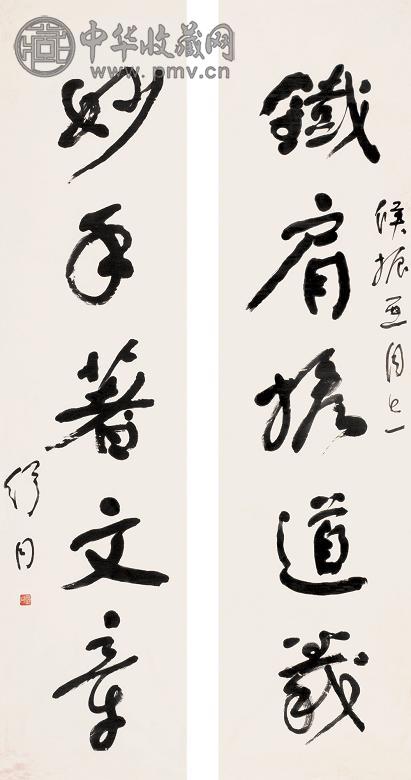 中华收藏网
www.pmv.cn
鐵肩擔道義
侯振亚同志
妙手著文章
舒同